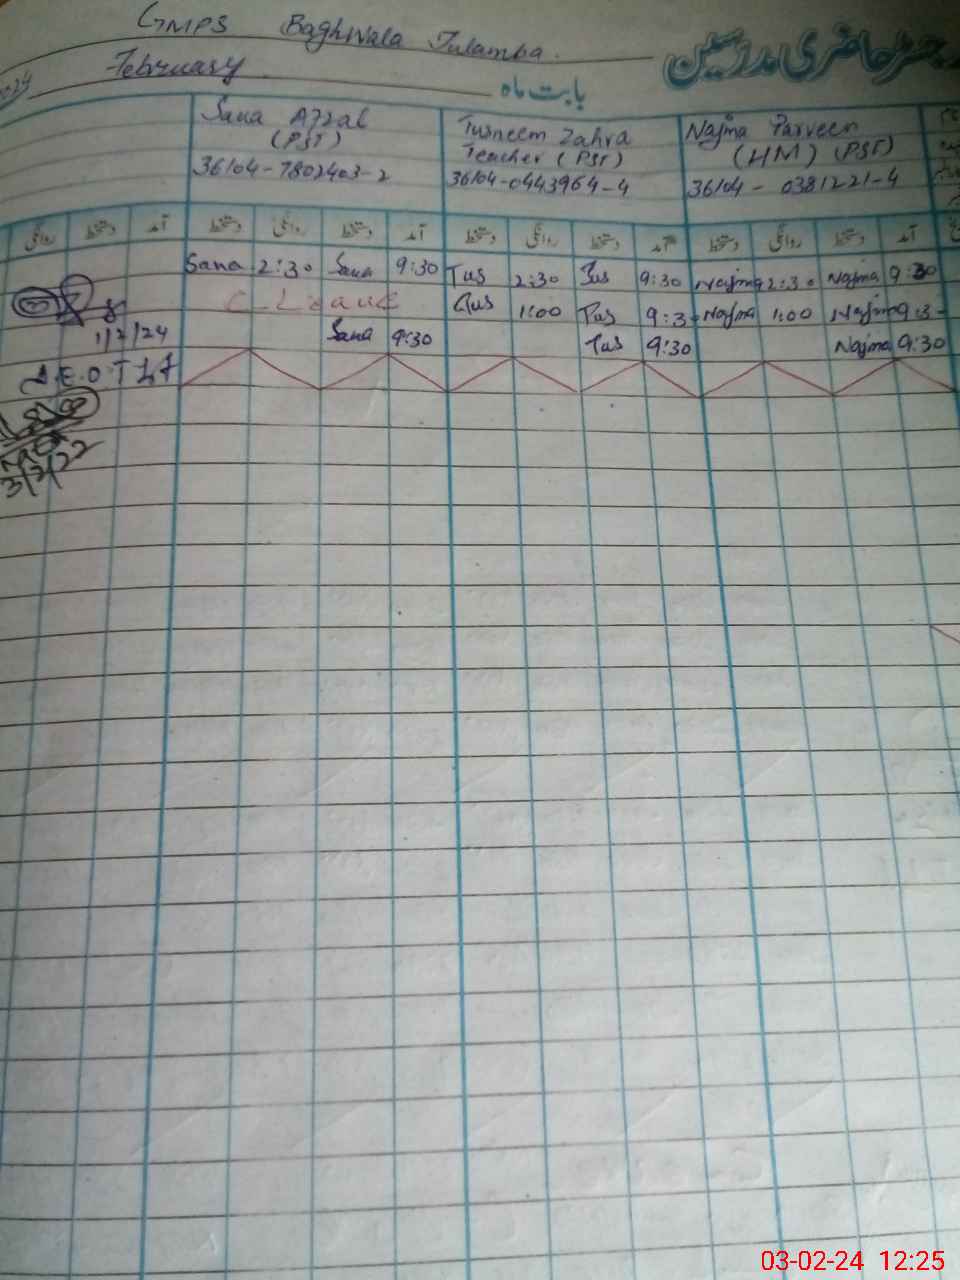 GMPS Baghwala Tulamba.
رجسٹر حاضری مدرسین
2024 February بابت ماہ
Sana Afzal
(PST)
36104-7802403-2
Tusneem Zahra
Teacher (PST)
36104-0443964-4
Najma Parveen
(HM) (PST)
36104-0381221-4
روانگی دستخط آمد دستخط روانگی دستخط آمد دستخط روانگی دستخط آمد دستخط روانگی دستخط آمد
Sana 2:30 Sana 9:30 Tus 2:30 Tus 9:30 Najma 2:30 Najma 9:30
C-Leave Tus 1:00 Tus 9:3- Najma 1:00 Najma 9:3-
1/2/24 Sana 9:30 Tus 9:30 Najma 9:30
3/2/22
03-02-24 12:25